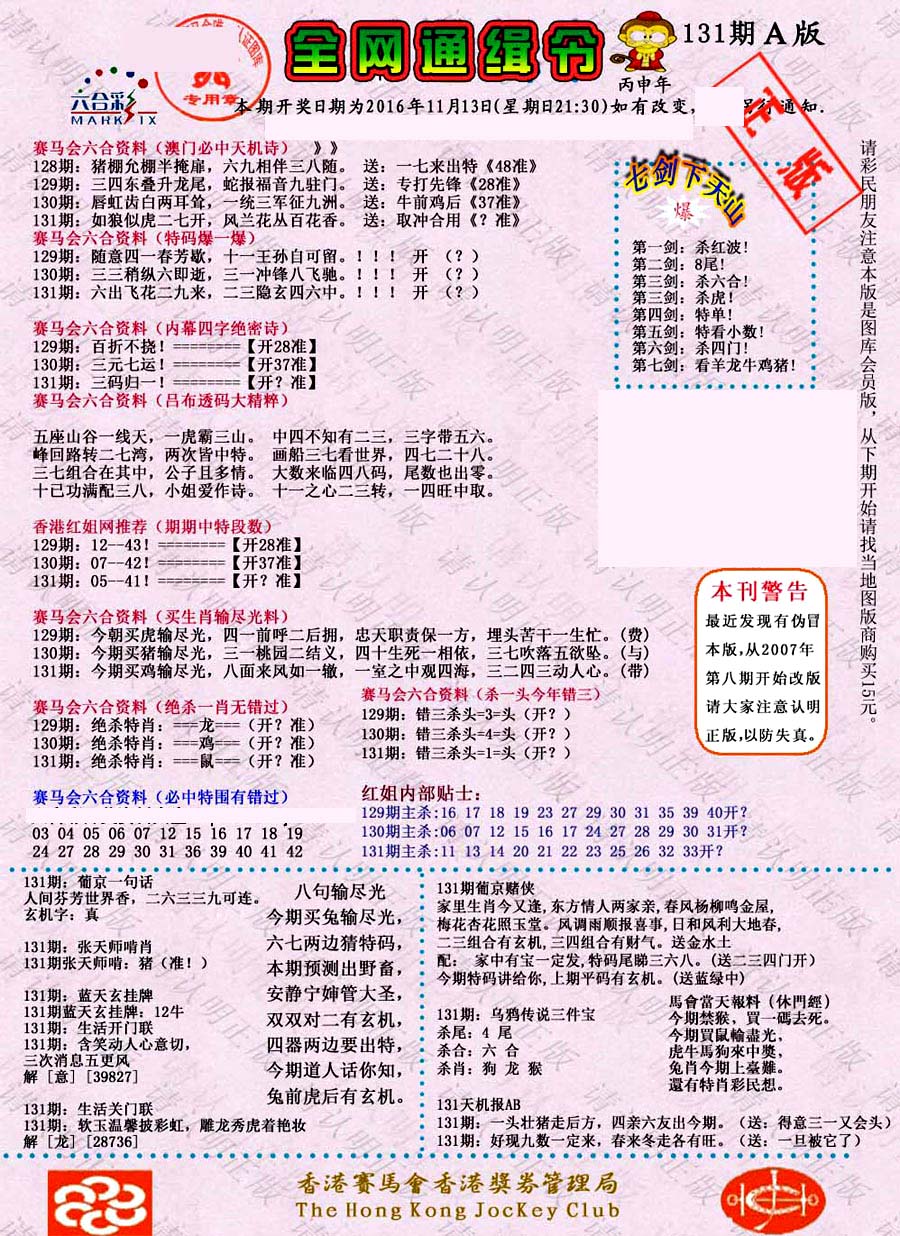 全网通缉令
131期A版
丙申年
六合彩
MARK SIX
专用章
本期开奖日期为2016年11月13日(星期日21:30)如有改变,
通知.
正版
赛马会六合资料（澳门必中天机诗）　》》
128期: 猪棚允棚半掩扉, 六九相伴三八随。 送: 一七来出特《48准》
129期: 三四东叠升龙尾, 蛇报福音九驻门。 送: 专打先锋《28准》
130期: 唇虹齿白两耳耸, 一统三军征九洲。 送: 牛前鸡后《37准》
131期: 如狼似虎二七开, 风兰花丛百花香。 送: 取冲合用《? 准》
赛马会六合资料（特码爆一爆）
129期: 随意四一春芳歇, 十一王孙自可留。!!! 开 （?）
130期: 三三稍纵六即逝, 三一冲锋八飞驰。!!! 开 （?）
131期: 六出飞花二九来, 二三隐玄四六中。!!! 开 （?）
赛马会六合资料（内幕四字绝密诗）
129期: 百折不挠! ========【开28准】
130期: 三元七运! ========【开37准】
131期: 三码归一! ========【开? 准】
赛马会六合资料（吕布透码大精粹）
五座山谷一线天, 一虎霸三山。 中四不知有二三, 三字带五六。
峰回路转二七湾, 两次皆中特。 画船三七看世界, 四七二十八。
三七组合在其中, 公子且多情。 大数来临四八码, 尾数也出零。
十已功满配三八, 小姐爱作诗。 十一之心二三转, 一四旺中取。
香港红姐网推荐（期期中特段数）
129期: 12--43! ========【开28准】
130期: 07--42! ========【开37准】
131期: 05--41! ========【开? 准】
赛马会六合资料（买生肖输尽光料）
129期: 今朝买虎输尽光, 四一前呼二后拥, 忠天职责保一方, 埋头苦干一生忙。(费)
130期: 今期买猪输尽光, 三一桃园二结义, 四十生死一相依, 三七吹落五欲坠。(与)
131期: 今期买鸡输尽光, 八面来风如一辙, 一室之中观四海, 三二四三动人心。(带)
赛马会六合资料（绝杀一肖无错过）
129期: 绝杀特肖: ===龙===（开? 准）
130期: 绝杀特肖: ===鸡===（开? 准）
131期: 绝杀特肖: ===鼠===（开? 准）
赛马会六合资料（杀一头今年错三）
129期: 错三杀头=3=头（开? ）
130期: 错三杀头=4=头（开? ）
131期: 错三杀头=1=头（开? ）
赛马会六合资料（必中特围有错过）
03 04 05 06 07 12 15 16 17 18 19
24 27 28 29 30 31 36 39 40 41 42
红姐内部贴士:
129期主杀:16 17 18 19 23 27 29 30 31 35 39 40开?
130期主杀:06 07 12 15 16 17 24 27 28 29 30 31开?
131期主杀:11 13 14 20 21 22 23 25 26 32 33开?
七剑下天山
爆
第一剑: 杀红波!
第二剑: 8尾!
第三剑: 杀六合!
第三剑: 杀虎!
第四剑: 特单!
第五剑: 特看小数!
第六剑: 杀四门!
第七剑: 看羊龙牛鸡猪!
请彩民朋友注意本版是图库会员版, 从下期开始请找当地图版商购买15元。
本刊警告
最近发现有伪冒
本版,从2007年
第八期开始改版
请大家注意认明
正版,以防失真。
131期: 葡京一句话
人间芬芳世界香, 二六三三九可连。
玄机字: 真
131期: 张天师啃肖
131期张天师啃: 猪（准! ）
131期: 蓝天玄挂牌
131期蓝天玄挂牌: 12牛
131期: 生活开门联
131期: 含笑动人心意切,
三次消息五更风
解 [意] [39827]
131期: 生活关门联
131期: 软玉温馨披彩虹, 雕龙秀虎着艳妆
解 [龙] [28736]
八句输尽光
今期买兔输尽光,
六七两边猜特码,
本期预测出野畜,
安静宁婶管大圣,
双双对二有玄机,
四器两边要出特,
今期道人话你知,
兔前虎后有玄机。
131期葡京赌侠
家里生肖今又逢,东方情人两家亲,春风杨柳鸣金屋,
梅花杏花照玉堂。风调雨顺报喜事,日和风利大地春,
二三组合有玄机,三四组合有财气。送金水土
配: 家中有宝一定发,特码尾睇三六八。(送二三四门开)
今期特码讲给你,上期平码有玄机。(送蓝绿中)
131期: 乌鸦传说三件宝
杀尾: 4 尾
杀合: 六 合
杀肖: 狗 龙 猴
馬會當天報料（休門經）
今期禁猴, 買一碼去死。
今期買鼠輸盡光,
虎牛馬狗來中獎,
兔肖今期上臺難。
還有特肖彩民想。
131天机报AB
131期: 一头壮猪走后方, 四亲六友出今期。(送: 得意三一又会头)
131期: 好现九数一定来, 春来冬走各有旺。(送: 一旦被它了)
香港賽馬會香港獎券管理局
The Hong Kong JocKey Club